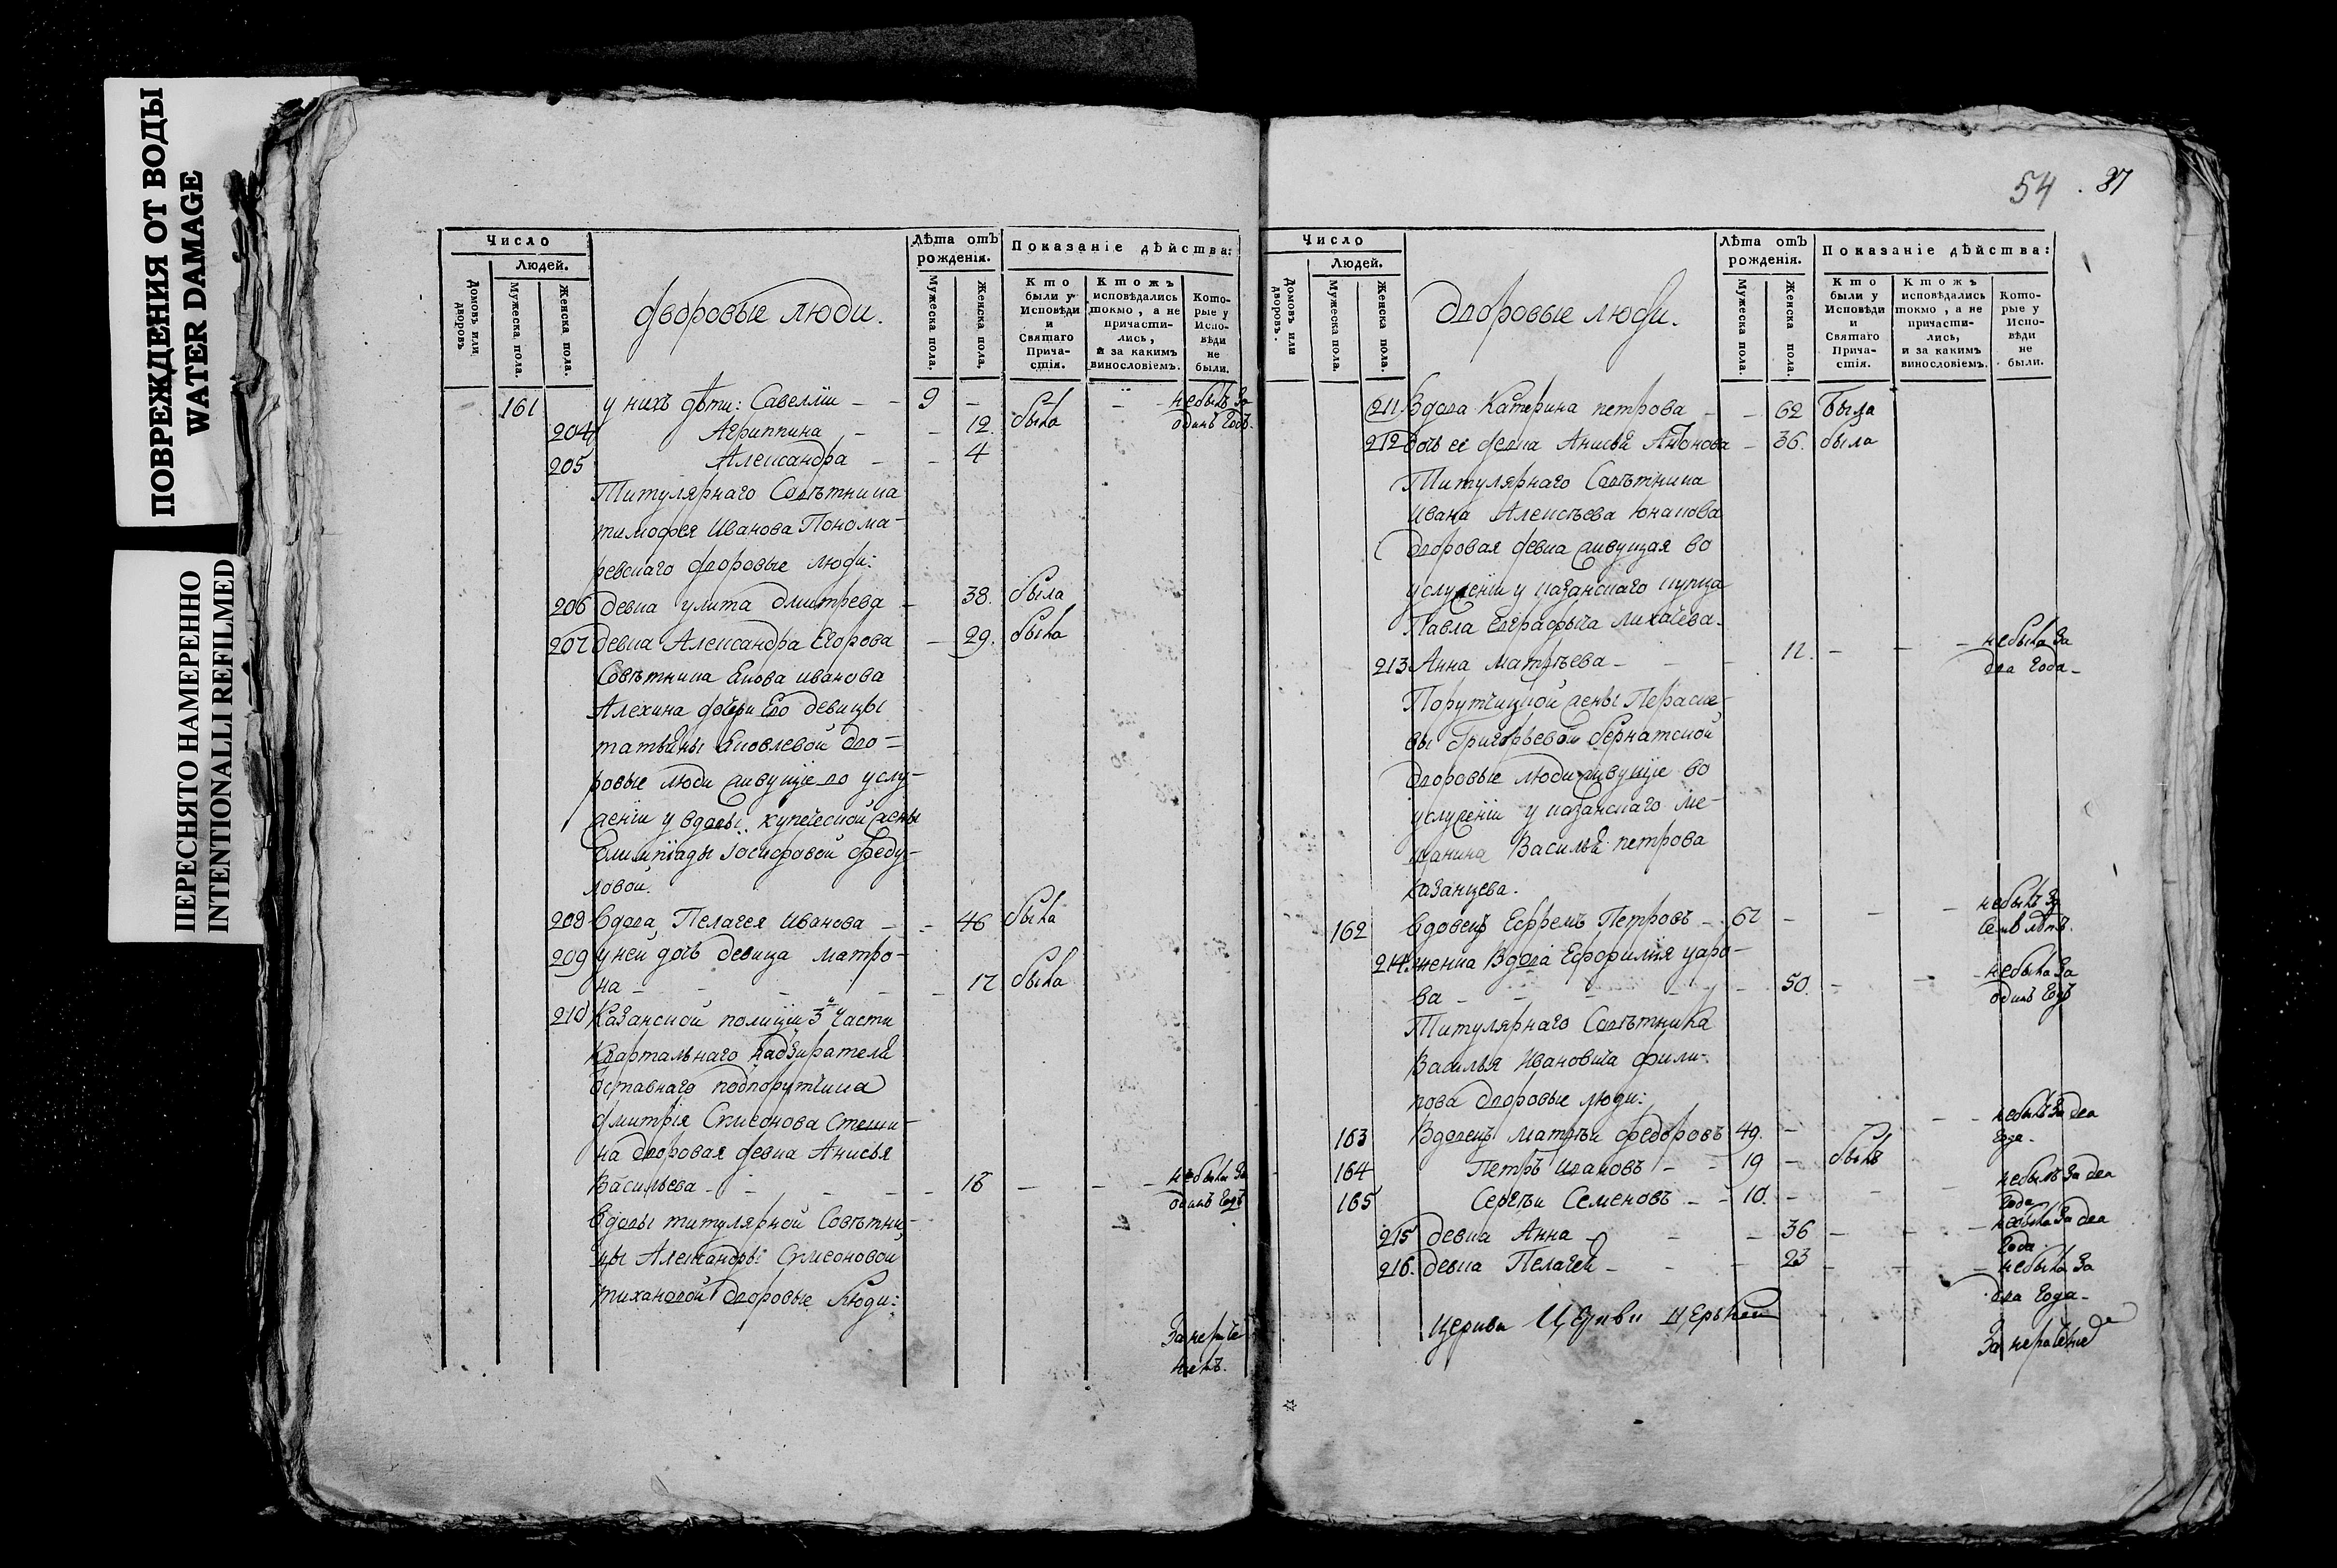 ПОВРЕЖДЕНИЯ ОТ ВОДЫ
WATER DAMAGE
ПЕРЕСНЯТО НАМЕРЕННО
INTENTIONALLI REFILMED
Число
Людей.
Домовъ или дворовъ
Мужеска пола.
Женска пола.
дворовые люди.
Лѣта отъ рожденія.
Мужеска пола.
Женска пола.
Показаніе дѣйства:
Кто были у Исповѣди и Святаго Причастія.
Ктожъ исповѣдались токмо, а не причастились, и за какимъ винословіемъ.
Которые у Исповѣди не были.
161 у нихъ дѣти: Савеллiи 9 небылъ За одинъ Годъ.
204 Агриппина 12. была
205 Александра 4
Титулярнаго Совѣтника
тимофея Иванова Понома-
ревскаго дворовые люди:
206 девка улита дмитрева 38. была
207 девка Александра Егорова 29. была
Совѣтника Якова иванова
Алехина дочери Его девицы
татьяны Яковлевой дво-
ровые люди живущiе во услу-
женiи у вдовы купеческой жены
Олимпiады Iосифовой феду-
ловой.
208 вдова Пелагея Иванова 46 была
209 у неи дочь девица матро-
на 17 была
210 Казанской полицiи 3й части
Квартальнаго надзирателя
Отставнаго подпорутчика
дмитрiя Симеонова
на дворовая девка Анисья
Васильева 16 небыла За одинъ Годъ
вдовы титулярной Совѣтни-
цы Александры Симеоновой
тихановой дворовые люди:
54 . 87
Число
Людей.
Домовъ или дворовъ.
Мужеска пола.
Женска пола.
дворовые люди.
Лѣта отъ рожденія.
Мужеска пола.
Женска пола.
Показаніе дѣйства:
Кто были у Исповѣди и Святаго Причастія.
Ктожъ исповѣдались токмо, а не причастились, и за какимъ винословіемъ.
Которые у Исповѣди не были.
211 вдова Катерина петрова 62 была
212 дочь ее девка Анисья Антонова 36. была
Титулярнаго Совѣтника
Ивана Алексѣева Юнакова
дворовая девка живущая во
услуженiи у казанскаго купца
Павла Евграфыча Лихачева
213 Анна Матвѣева 11. небыла За два Года
Порутчицкой жены Пераске-
вы Григорьевой Бернатской
дворовые люди живущiе во
услуженiи у казанскаго ме-
щанина Василья петрова
казанцева.
162 вдовецъ Ефремъ Петровъ 67 небылъ За семь лѣтъ.
214 женка Вдова Ефросинiя уаро-
ва 50. небыла За одинъ Годъ
Титулярнаго Совѣтника
Василья Ивановича фили-
пова дворовые люди:
163 Вдовецъ матвѣи федоровъ 49. небылъ За два года
164 Петръ Ивановъ 19 былъ
165 Сергѣи Семеновъ 10. небылъ За два года
215 девка Анна 36 небыла За два Года
216. девка Пелагея 23 небыла За два Года
церкви
За